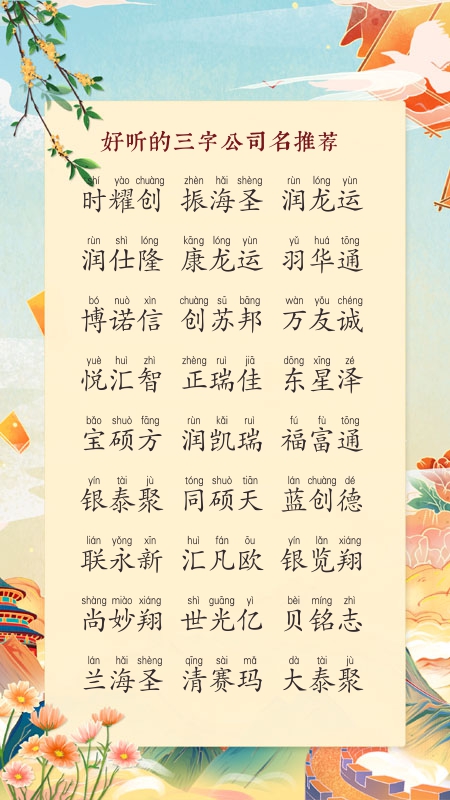 好听的三字公司名推荐
shí yào chuàng zhèn hǎi shèng rùn lóng yùn
时耀创 振海圣 润龙运
rùn shì lóng kāng lóng yùn yǔ huá tōng
润仕隆 康龙运 羽华通
bó nuò xìn chuàng sū bāng wàn yǒu chéng
博诺信 创苏邦 万友诚
yuè huì zhì zhèng ruì jiā dōng xīng zé
悦汇智 正瑞佳 东星泽
bǎo shuò fāng rùn kǎi ruì fú fù tōng
宝硕方 润凯瑞 福富通
yín tài jù tóng shuò tiān lán chuàng dé
银泰聚 同硕天 蓝创德
lián yǒng xīn huì fán ōu yín lǎn xiáng
联永新 汇凡欧 银览翔
shàng miào xiáng shì guāng yì bèi míng zhì
尚妙翔 世光亿 贝铭志
lán hǎi shèng qīng sài mǎ dà tài jù
兰海圣 清赛玛 大泰聚